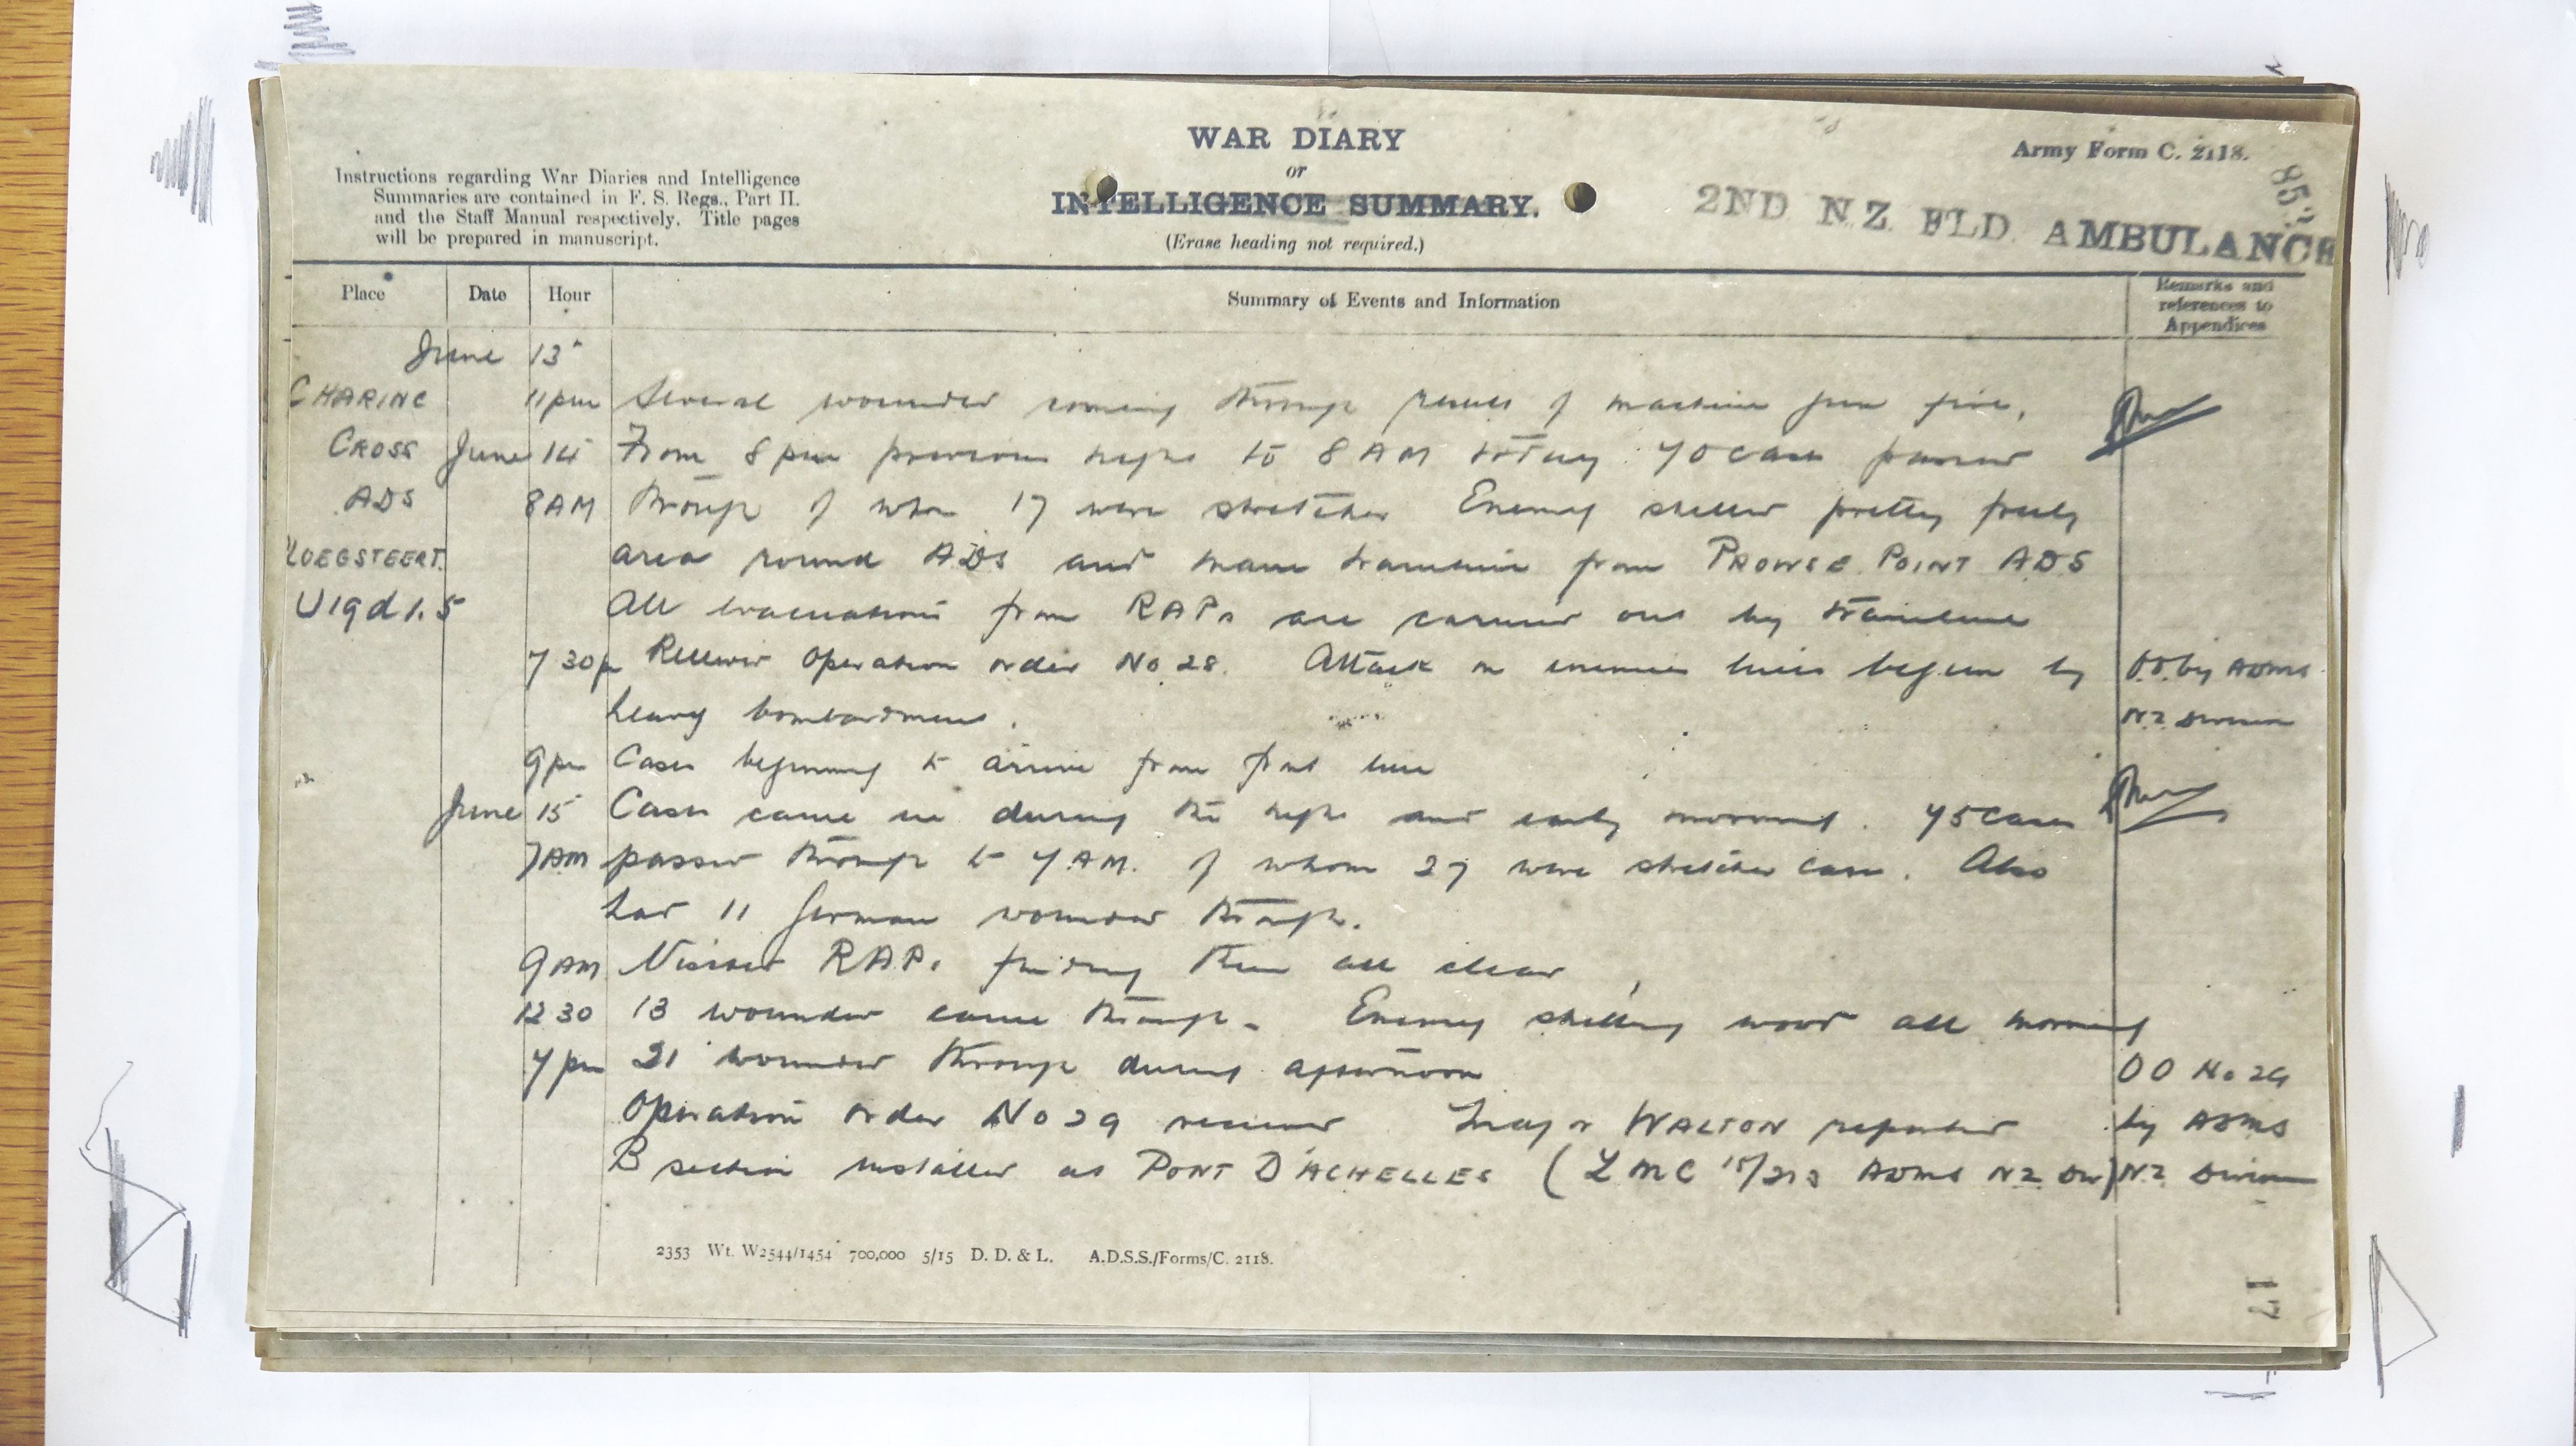 WAR DIARY
or
INTELLIGENCE SUMMARY.
(Erase heading not required.)
Instructions regarding War Diaries and Intelligence
Summaries are contained in F. S. Regs., Part II.
and the Staff Manual respectively. Title pages
will be prepared in manuscript.
Army Form C. 2118.
2ND N.Z. FLD. AMBULANCE
Place Date Hour Summary of Events and Information Remarks and references to Appendices
June 13
CHARING 11pm Several wounded coming through result of machine gun fire.
CROSS June 14 From 8pm previous night to 8AM today 70 cases passed
ADS 8AM through of whom 17 were stretcher Enemy shelled pretty freely
LOEGSTEERT. area round ADS and tramline from PROWSE POINT ADS
U19d1.5 All evacuations from RAPs are carried out by tramline
7 30p Received Operation order No 28. Attack on enemies lines begun by O.O. by ADMS
heavy bombardment. NZ Division
9pm Cases beginning to arrive from front line
June 15 Cases came in during the night and early morning. 75 cases
7AM passed through to 7 A.M. of whom 27 were stretcher cases. Also
had 11 German wounded through.
9AM Visited RAPs finding them all clear
12 30 13 wounded came through. Enemy shelling wood all morning
7pm 21 wounded through during afternoon OO No 29
Operation order No 29 received Major WALTON reported by ADMS
B section installed at PONT D'ACHELLES ( ADMS NZ Div) NZ Division
2353 Wt. W2544/1454 700,000 5/15 D. D. & L. A.D.S.S./Forms/C. 2118.
17